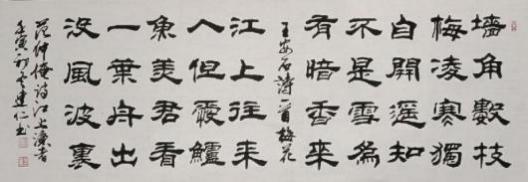 墻角數枝
梅凌寒獨
自開遥知
不是雪為
有暗香来
王安石詩一首梅花
江上往来
人但愛鱸
魚美君看
一葉舟出
没風波裏
范仲淹诗江上漁者
壬寅初建仁书